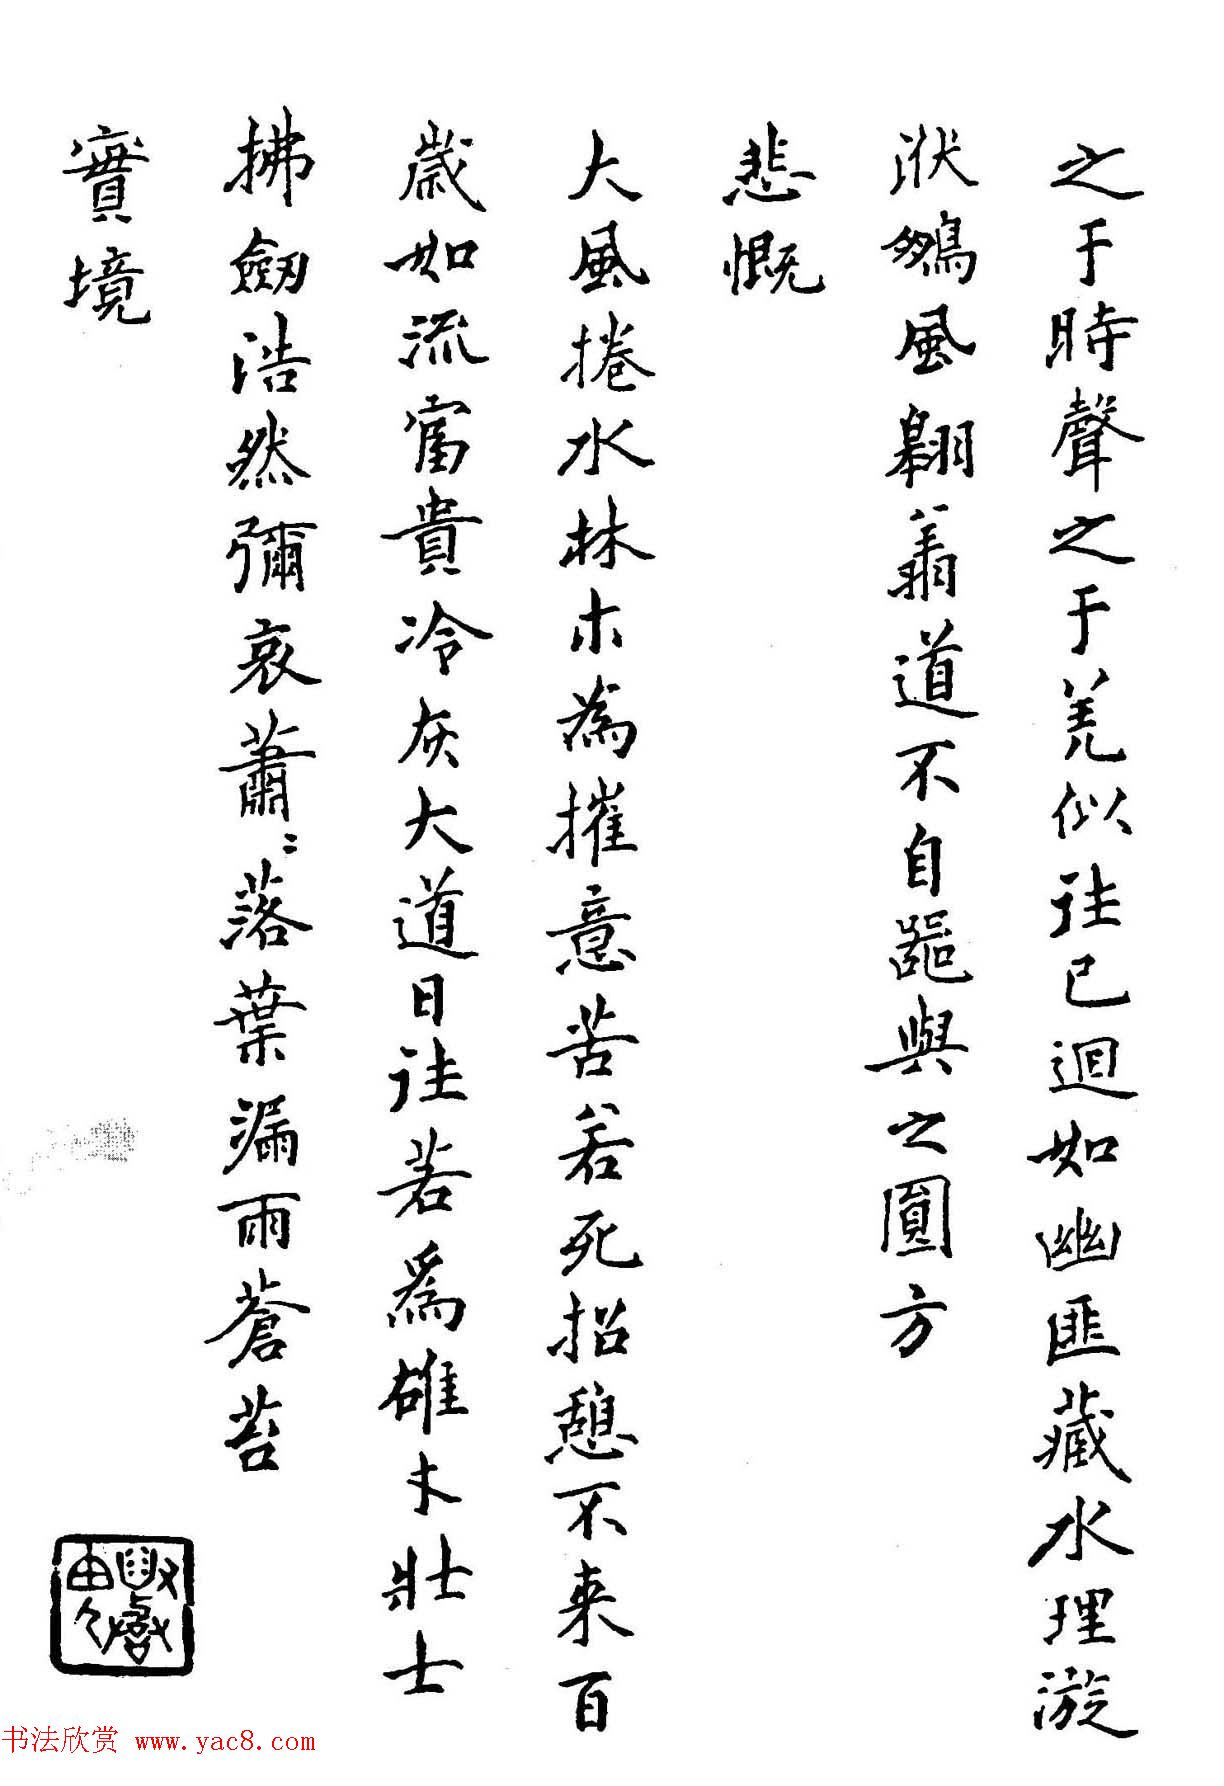 之于時聲之于羌似往已迴如幽匪藏水理漩
洑鵬風翱翔道不自器與之圓方
悲慨
大風捲水林木為摧意苦若死招憩不来百
歲如流富貴冷灰大道日往若為雄才壯士
拂劔浩然彌哀蕭〻落葉漏雨蒼苔
實境
书法欣赏 www.yac8.com